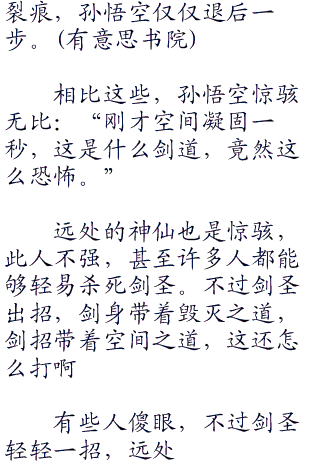 裂痕，孙悟空仅仅退后一
步。(有意思书院)
相比这些，孙悟空惊骇
无比：“刚才空间凝固一
秒，这是什么剑道，竟然这
么恐怖。”
远处的神仙也是惊骇，
此人不强，甚至许多人都能
够轻易杀死剑圣。不过剑圣
出招，剑身带着毁灭之道，
剑招带着空间之道，这还怎
么打啊
有些人傻眼，不过剑圣
轻轻一招，远处